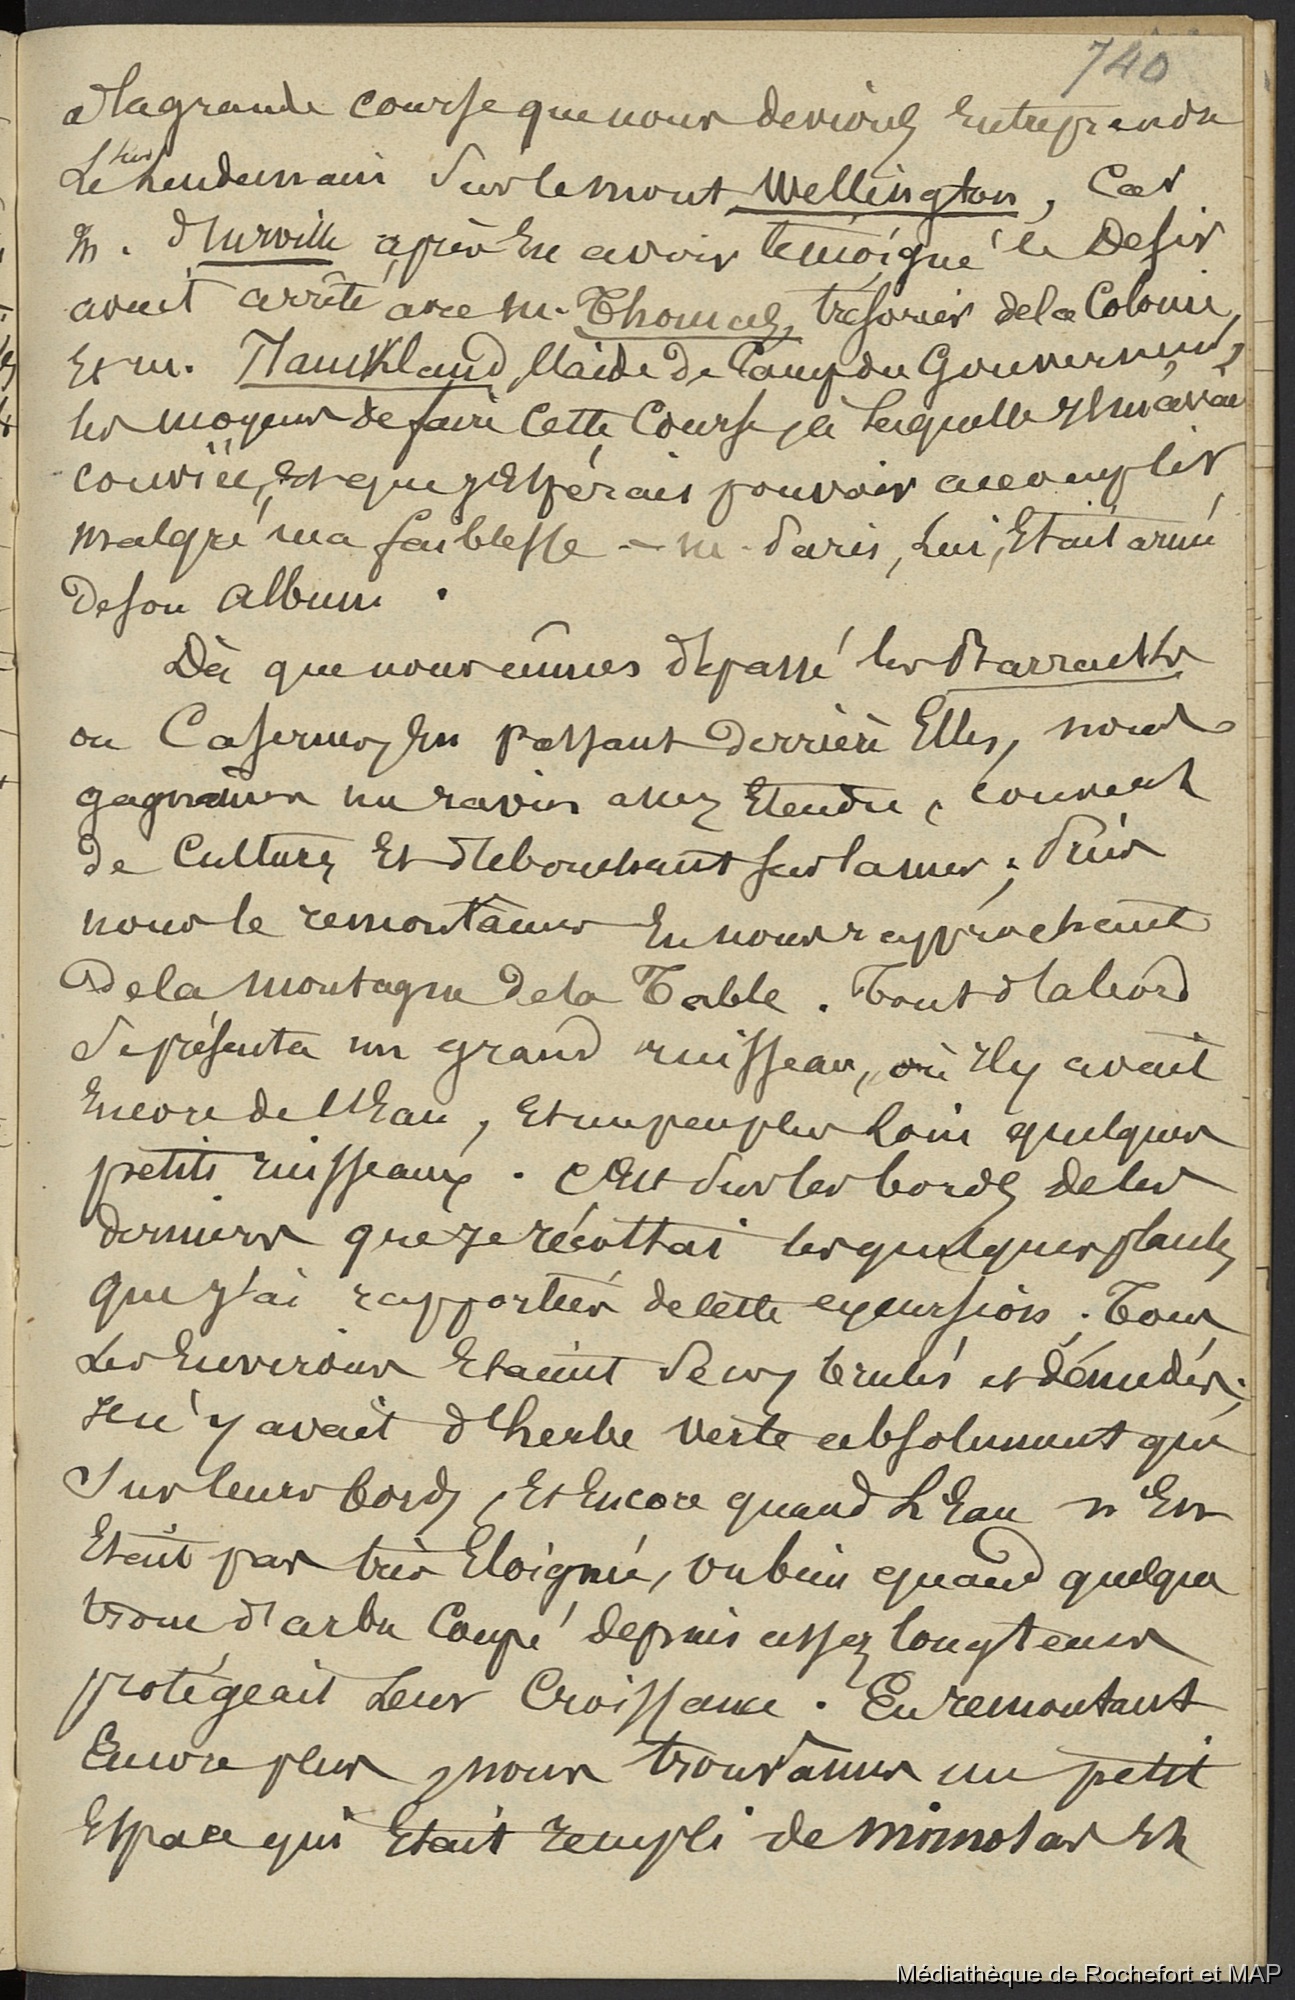 740
à la grande course que nous devions Entreprendre
Le surlendemain Sur le mont Wellington, Car
m. d'urville après En avoir témoigné le Desir
avait arrêté avec m. Thomas, trésorier de la Colonie,
Et m. Mauckland, l'aide De Camp du Gouverneur,
les moyens de faire Cette Course, à laquelle il m'avait
conviée, Et que j'Espérais pouvoir accomplir
malgré ma faiblesse — m. Paris, Lui, Etait armé
De son Album.
Dès que nous eûmes dépassé les Barracks
ou Casernes, En passant Derrière Elles, nous
gagnâmes un ravin assez Etendu, couvert
de Cultures Et débouchant sur la mer; Puis
nous le remontâmes En nous rapprochant
De la montagne De la Table. Tout d'abord
Se présenta un grand ruisseau, où il y avait
Encore de l'Eau, Et un peu plus Loin quelques
petits ruisseaux. C'Est Sur les bords De ces
derniers que je récoltai les quelques plantes
que j'ai rapportées de cette excursion. Tous
Les Environs Etaient Secs, brulés et dénudés;
il n'y avait d'herbe verte absolument que
Sur leurs bords, Et Encore quand L'Eau n'En
Etait pas très Eloignée, ou bien quand quelque
tronc d'arbre Coupé depuis assez longtems
protégeait Leur Croissance. En remontant
Encore plus, nous trouvâmes un petit
Espace qui Etait rempli de mimosas En
Médiathèque de Rochefort et MAP